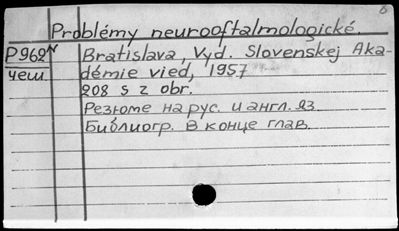 Problémy neurooftalmologické.
P962 Bratislava, Vyd. Slovenskej Aka-
чеш. démie vied, 1957
208 s z obr.
Резюме на рус. и англ. яз.
Библиогр. в конце глав.